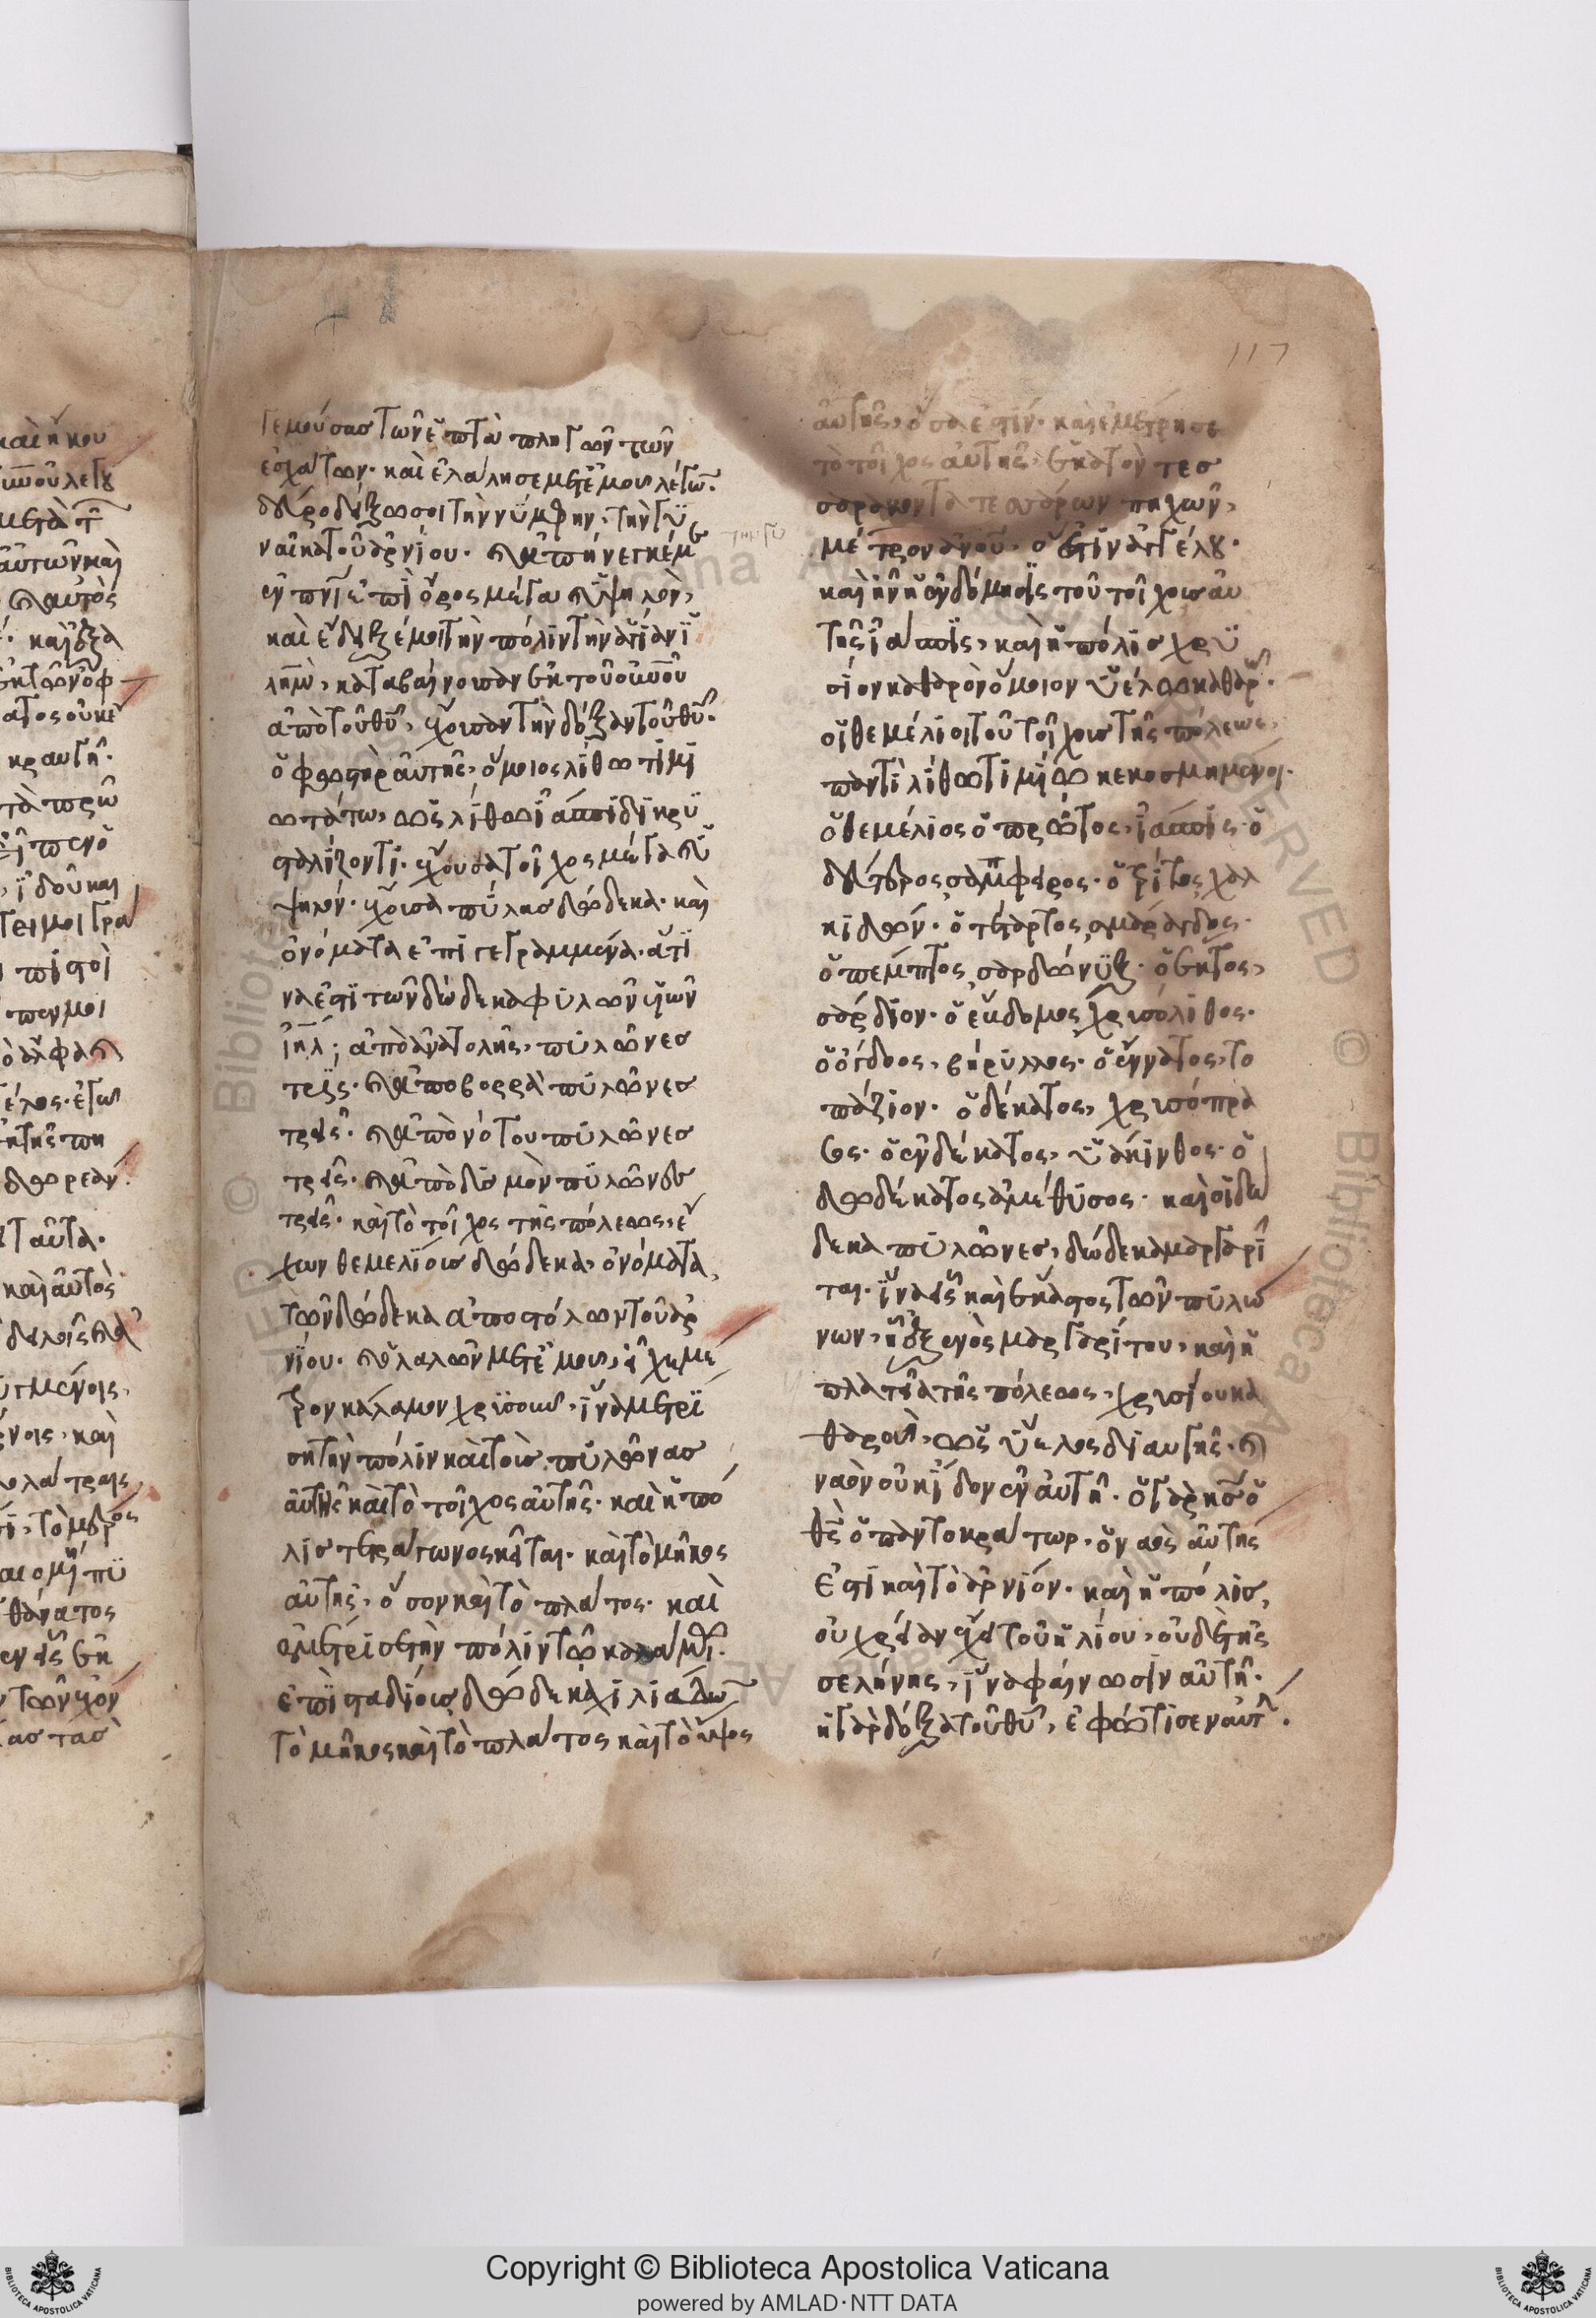 καὶ ἤκου
μετὰ τ
αὐτῶν καὶ
κ αὐτὸς
κραυγὴ
ἰδοὺ και
πιστοὶ
ταῦτα
καὶ αὐτὸς
θάνατος
117
γεμούσας τῶν ἑπτὰ πληγῶν τῶν
ἐσχάτων· καὶ ἐλάλησε μετ' ἐμοῦ λέγων·
δεῦρο δείξω σοι τὴν νύμφην, τὴν γυ
ναῖκα τοῦ ἀρνίου· κ ἀπήνεγκέ με
ἐν πνι ἐπὶ ὄρος μέγα κ ὑψηλὸν,
καὶ ἔδειξέ μοι τὴν πόλιν τὴν ἁγίαν ϊ
λημ, καταβαίνουσαν ἐκ τοῦ οὐνου
ἀπὸ τοῦ θυ, ἔχουσαν τὴν δόξαν τοῦ θυ·
ὁ φωστὴρ αὐτῆς, ὅμοιος λίθω τιμι
ωτάτω, ὡς λίθω ἰάσπιδι κρυ
σταλίζοντι· ἔχουσα τοῖχος μέγα κ ὑ
ψηλόν· ἔχουσα πύλας δώδεκα· καὶ
ὀνόματα ἐπιγεγραμμένα· ἅτι
να ἐστι τῶν δώδεκα φυλῶν υἱῶν
ιηλ· ἀπὸ ἀνατολῆς, πυλῶνες
τρεῖς· κ ἀπο βορρᾶ πυλῶνες
τρεῖς· κ ἀπὸ νότου πυλῶνες
τρεῖς· κ ἀπὸ δυσμὸν πυλῶνες
τρεῖς· καὶ τὸ τοῖχος τῆς πόλεως, ἔ
χων θεμελίους δώδεκα, ὀνόματα
τῶν δώδεκα ἀποστόλων τοῦ ἀρ
νίου· κ ὁ λαλῶν μετ' ἐμοῦ, εἶχε μέ
τρον κάλαμον χρυσοῦν, ἵνα μετρί
ση τὴν πόλιν καὶ τοὺς πυλῶνας
αὐτῆς καὶ τὸ τοῖχος αὐτῆς· καὶ ἡ πό
λις τετράγωνος κεῖται· καὶ τὸ μῆκος
αὐτῆς, ὅσον καὶ τὸ πλάτος· καὶ
ἐμέτρισε τὴν πόλιν τῶ καλάμω
ἐπὶ σταδίους δώδεκα χιλιάδων
τὸ μῆκος καὶ τὸ πλάτος καὶ τὸ ὕψος
αὐτῆς, ἴσα ἐστίν· καὶ ἐμέτρησε
τὸ τοῖχος αὐτῆς, ἑκατὸν τεσ
σαράκοντα τεσσάρων πηχῶν,
μέτρον ανου· ὅ ἐστιν ἀγγέλου·
καὶ ἦν ἡ ἐνδόμησις τοῦ τοίχους αὐ
τῆς ἴασπις, καὶ ἡ πόλις χρυ
σίον καθαρὸν ὅμοιον ὑέλω καθαρῶ·
οἱ θεμέλιοι τοῦ τοίχους τῆς πόλεως,
παντὶ λίθω τιμίω κεκοσμημένοι·
ὁ θεμέλιος ὁ πρῶτος, ἴασπις· ὁ
δεύτερος, σάμφειρος· ὁ τρίτος, χαλ
κιδών· ὁ τέταρτος, σμάραγδος·
ὁ πέμπτος, σαρδώνυξ· ὁ ἕκτος,
σάρδιον· ὁ ἕβδομος, χρυσόλιθος·
ὁ ὄγδοος, βήρυλλος· ὁ ἔννατος, το
πάζιον· ὁ δέκατος, χρυσόπρα
σος· ὁ ἑνδέκατος, ὑάκινθος· ὁ
δωδέκατος ἀμέθυσος· καὶ οἱ δώ
δεκα πυλῶνες, δώδεκα μαργαρῖ
ται· ἵνα εἷς καὶ ἕκαστος τῶν πυλώ
νων, ἦν ἐξ ἑνὸς μαργαρίτου, καὶ ἡ
πλατεῖα τῆς πόλεως, χρυσίον κα
θαρὸν, ὡς ὕελος διαυγής· κ
ναὸν οὐκ ἶδον ἐν αὐτῆ· ὁ γὰρ κς ὁ
θς ὁ παντοκράτωρ, ὁ ναὸς αὐτῆς
ἐστι καὶ τὸ ἀρνίον· καὶ ἡ πόλις,
οὐ χρείαν ἔχει τοῦ ἡλίου, οὐδὲ τῆς
σελήνης, ἵνα φαίνωσιν αὐτῆ·
ἡ γὰρ δόξα τοῦ θυ, ἐφώτισεν αὐτήν·
Copyright © Biblioteca Apostolica Vaticana
powered by AMLAD·NTT DATA